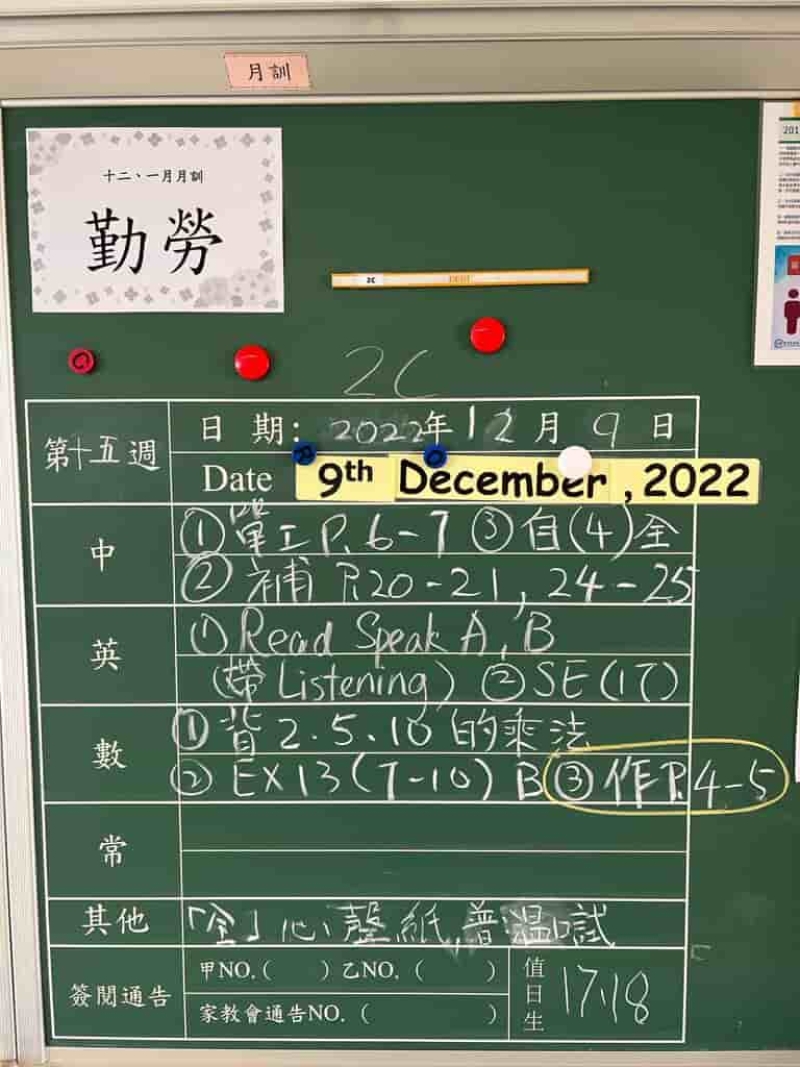 月訓
十二、一月月訓
勤勞
2C
2C
第十五週
日期: 2022年12月9日
Date 9th December, 2022
中
①單工P.6-7 ③自(4)全
②補 P.20-21, 24-25
英
①Read Speak A, B
(帶 Listening) ②SE(17)
數
①背2.5.10的乘法
②EX13(7-10) B ③作P.4-5
常
其他
「全」心聲紙,普溫口試
簽閱通告
甲NO.( ) 乙NO.( )
家教會通告NO.( )
值日生
17,18
201